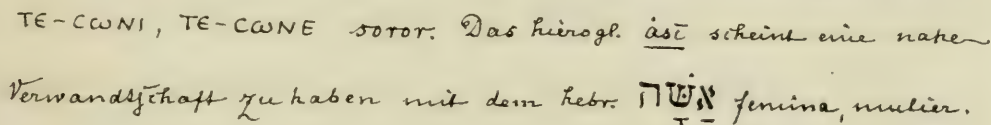 ⲦⲈ-ⲤⲰⲚⲒ, ⲦⲈ-ⲤⲰⲚⲈ soror. Das hierogl. ȧst scheint eine nahe
Verwandtschaft zu haben mit dem hebr. אִשָּׁה femina, mulier.